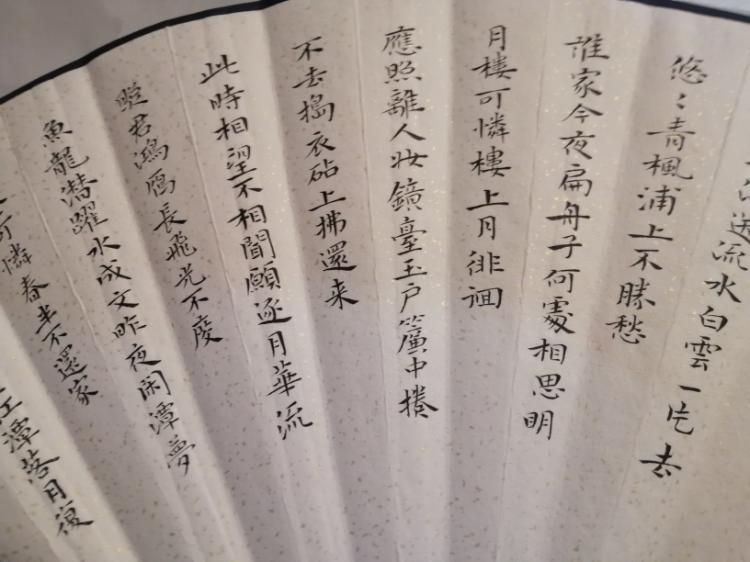 送流水白雲一片去
悠〻青楓浦上不勝愁
誰家今夜扁舟子何處相思明
月樓可憐樓上月徘徊
應照離人妝鏡臺玉户簾中捲
不去搗衣砧上拂還来
此時相望不相聞願逐月華流
照君鴻鴈長飛光不度
魚龍潜躍水成文昨夜闲潭夢
可憐春半不還家
江潭落月復